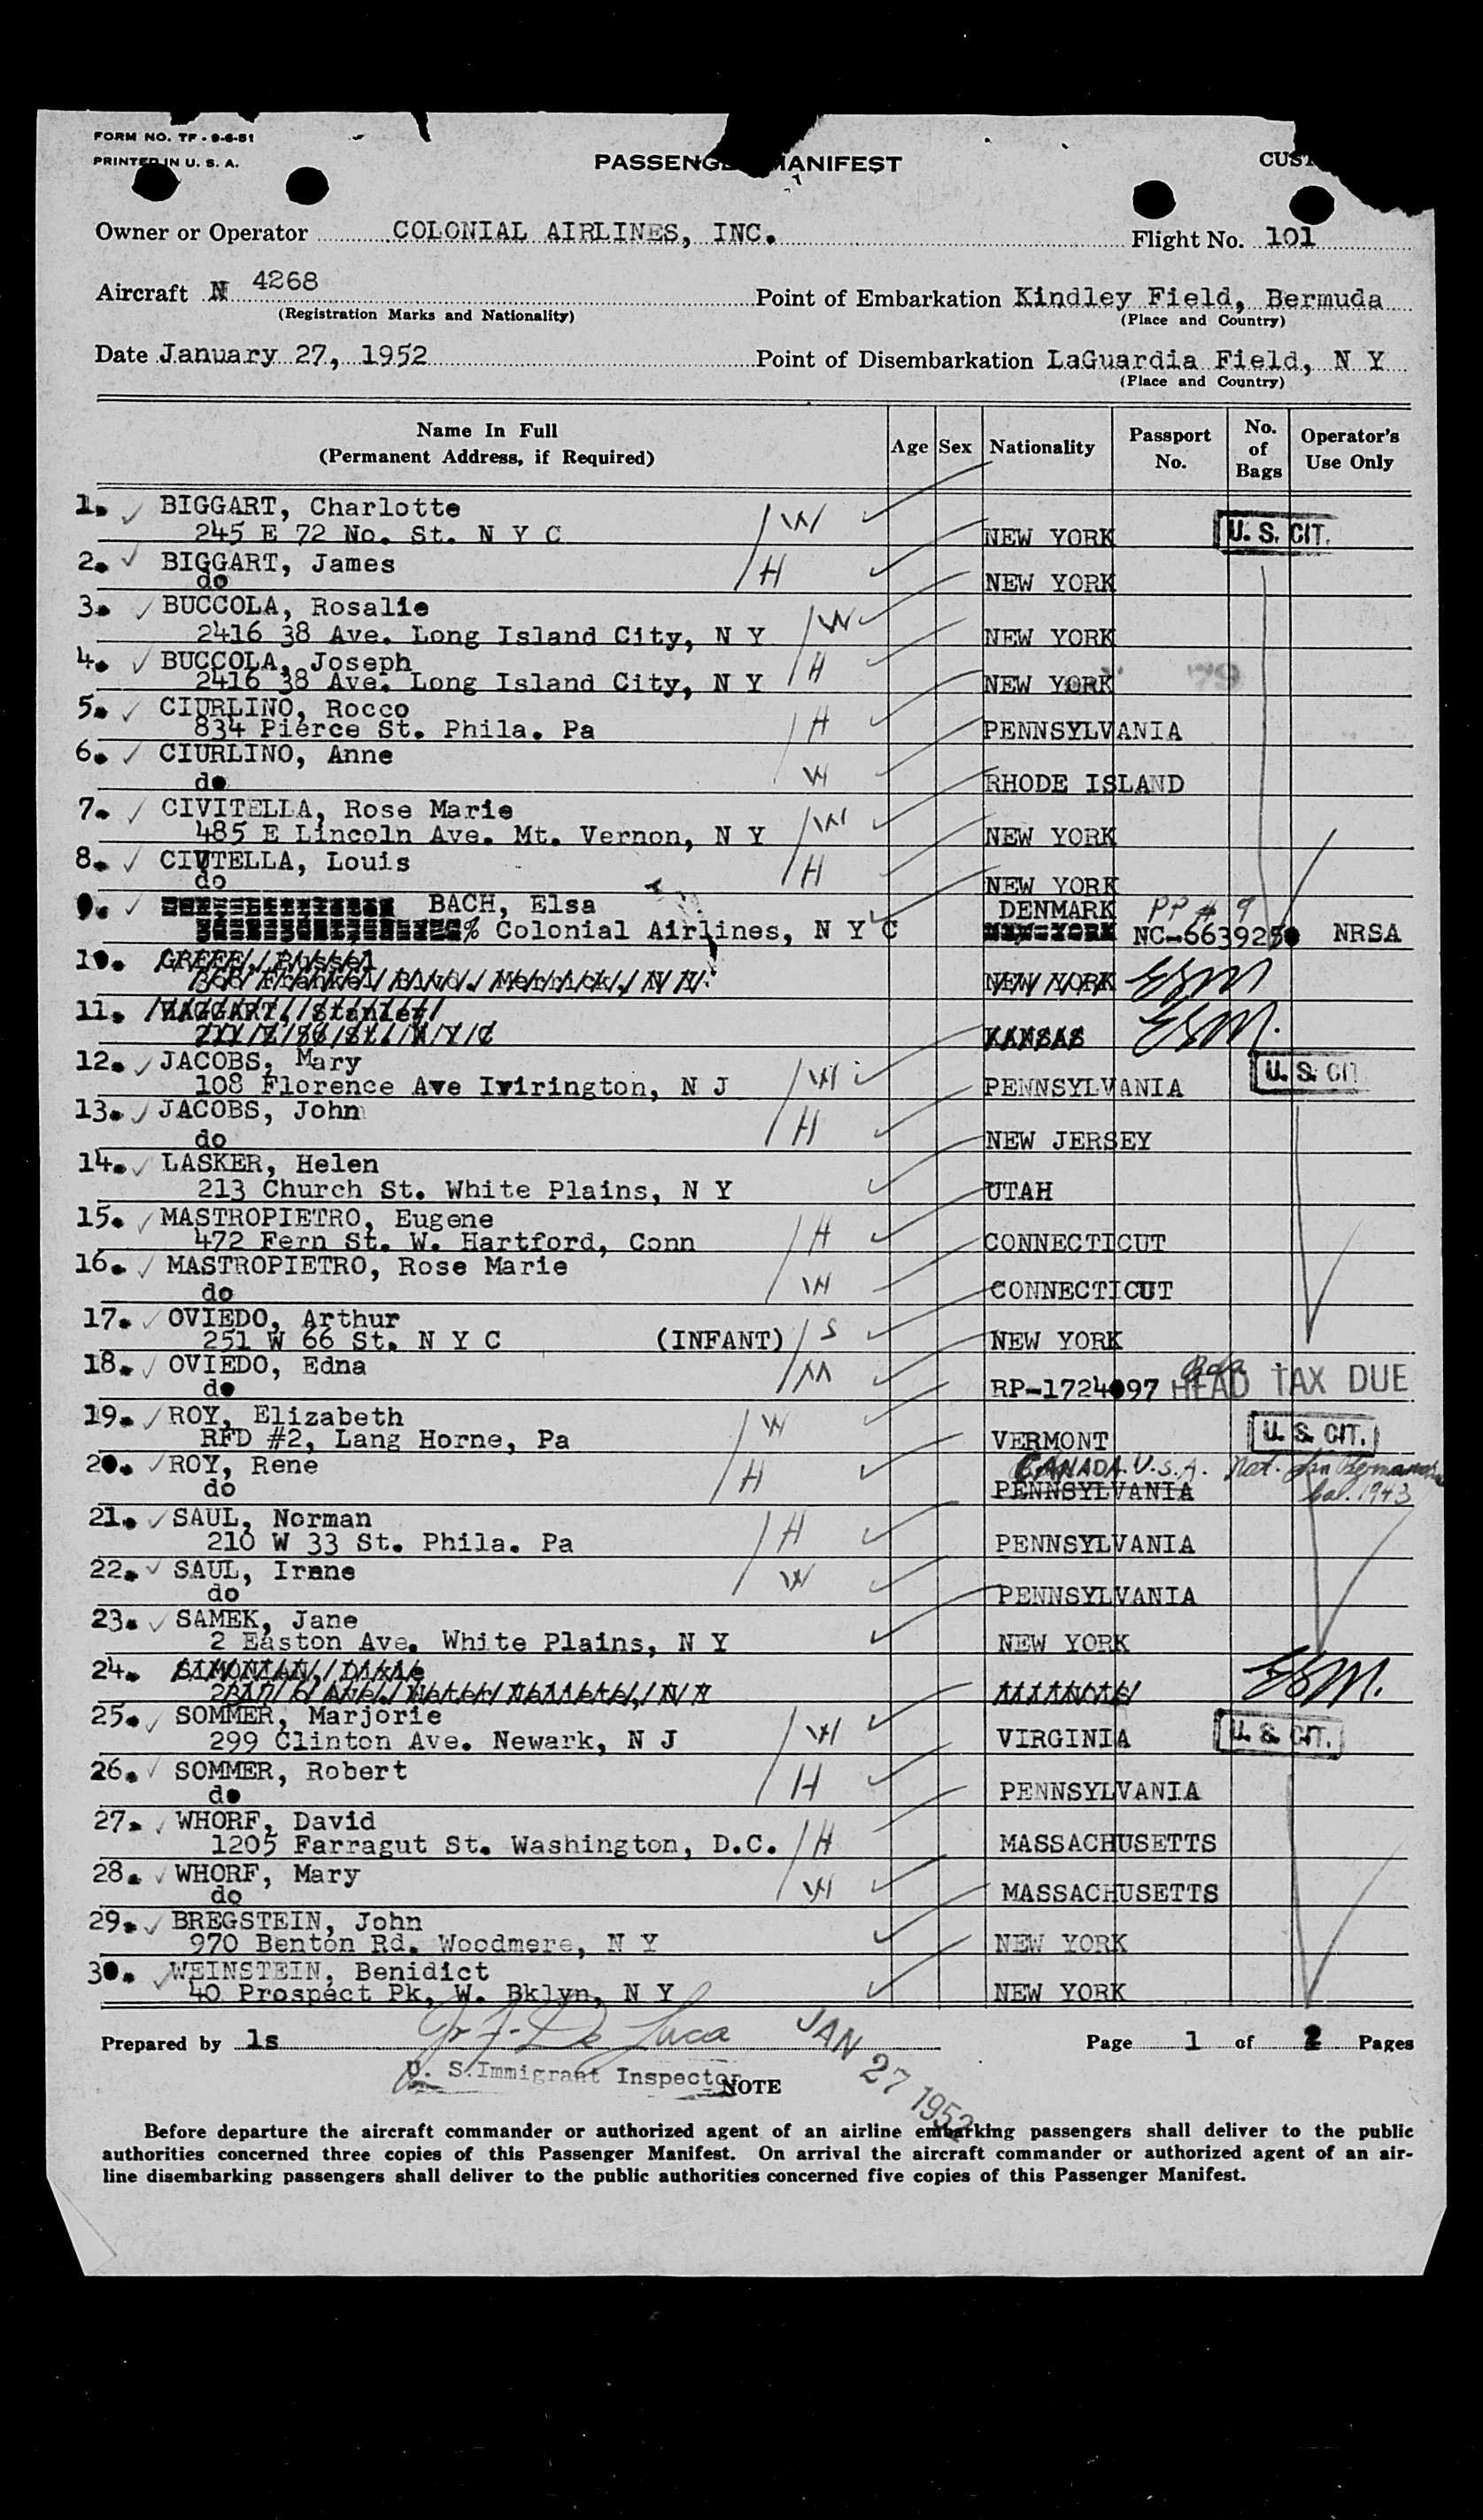 FORM NO. TF - 9-6-51
PRINTED IN U. S. A.
PASSENGER MANIFEST
Owner or Operator COLONIAL AIRLINES, INC. Flight No. 101
Aircraft N 4268 Point of Embarkation Kindley Field, Bermuda
(Registration Marks and Nationality) (Place and Country)
Date January 27, 1952 Point of Disembarkation LaGuardia Field, N Y
(Place and Country)
Name In Full (Permanent Address, if Required) Age Sex Nationality Passport No. No. of Bags Operator's Use Only
1. BIGGART, Charlotte W
245 E 72 No. St. N Y C NEW YORK U. S. CIT.
2. BIGGART, James H
do NEW YORK
3. BUCCOLA, Rosalie W
2416 38 Ave. Long Island City, N Y NEW YORK
4. BUCCOLA, Joseph H
2416 38 Ave. Long Island City, N Y NEW YORK
5. CIURLINO, Rocco H
834 Pierce St. Phila. Pa PENNSYLVANIA
6. CIURLINO, Anne W
do RHODE ISLAND
7. CIVITELLA, Rose Marie W
485 E Lincoln Ave. Mt. Vernon, N Y NEW YORK
8. CIVTELLA, Louis H
do NEW YORK
9. BACH, Elsa DENMARK PP # 9
% Colonial Airlines, N Y C NEW YORK NC-663925 NRSA
10. GREEF, Russel
Frankel Blvd. Merrick, N Y NEW YORK ESM
11. HAGGART, Stanley
N Y C KANSAS ESM.
12. JACOBS, Mary W
108 Florence Ave Ivirington, N J PENNSYLVANIA U. S. CIT
13. JACOBS, John H
do NEW JERSEY
14. LASKER, Helen
213 Church St. White Plains, N Y UTAH
15. MASTROPIETRO, Eugene H
472 Fern St. W. Hartford, Conn CONNECTICUT
16. MASTROPIETRO, Rose Marie W
do CONNECTICUT
17. OVIEDO, Arthur S
251 W 66 St. N Y C (INFANT) NEW YORK
18. OVIEDO, Edna M
do RP-1724097 HEAD TAX DUE
19. ROY, Elizabeth W
RFD #2, Lang Horne, Pa VERMONT U. S. CIT.
20. ROY, Rene H CANADA U.S.A. Nat. San Bernardino
do PENNSYLVANIA Cal. 1943
21. SAUL, Norman H
210 W 33 St. Phila. Pa PENNSYLVANIA
22. SAUL, Irene W
do PENNSYLVANIA
23. SAMEK, Jane
2 Easton Ave. White Plains, N Y NEW YORK
24. SIMONIAN, Dixie
ILLINOIS ESM.
25. SOMMER, Marjorie W
299 Clinton Ave. Newark, N J VIRGINIA U. S. CIT.
26. SOMMER, Robert H
do PENNSYLVANIA
27. WHORF, David
1205 Farragut St. Washington, D.C. H MASSACHUSETTS
28. WHORF, Mary W
do MASSACHUSETTS
29. BREGSTEIN, John
970 Benton Rd. Woodmere, N Y NEW YORK
30. WEINSTEIN, Benidict
40 Prospect Pk, W. Bklyn, N Y NEW YORK
Prepared by ls De Luca JAN 27 1952 Page 1 of 2 Pages
U. S. Immigrant Inspector
NOTE
Before departure the aircraft commander or authorized agent of an airline embarking passengers shall deliver to the public
authorities concerned three copies of this Passenger Manifest. On arrival the aircraft commander or authorized agent of an air-
line disembarking passengers shall deliver to the public authorities concerned five copies of this Passenger Manifest.